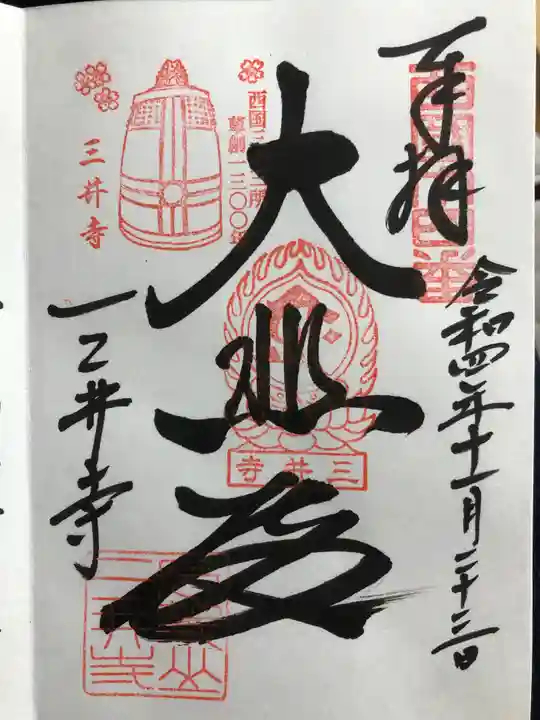 奉拝
令和四年十一月二十三日
西国三十三所
草創一三〇〇年
大悲殿
三井寺
三井寺
三井寺